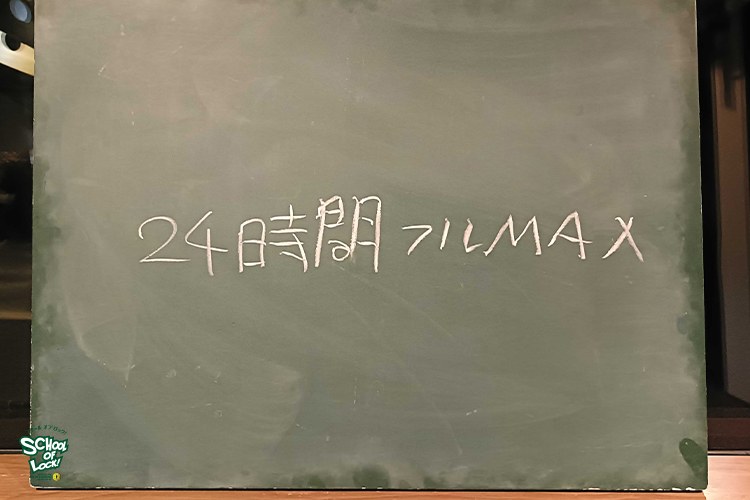 24時間フルMAX
SCHOOL
OF
LOCK!